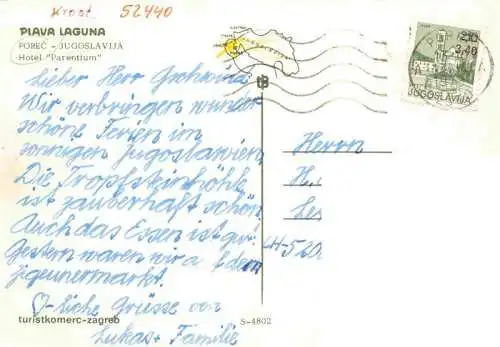 Kroat. 52440
PLAVA LAGUNA
POREČ - JUGOSLAVIJA
Hotel "Parentium"
Lieber Herr
Wir verbringen wunder
schöne Ferien im
sonnigen Jugoslawien.
Die Tropfsteinhöhle
ist zauberhaft schön.
Auch das Essen ist gut!
Gestern waren wir auf dem
Zigeunermarkt.
♡-liche Grüsse von
Lukas + Familie
turistkomerc-zagreb
S-4802
3,40
JUGOSLAVIJA
Herrn
H.
CH-520